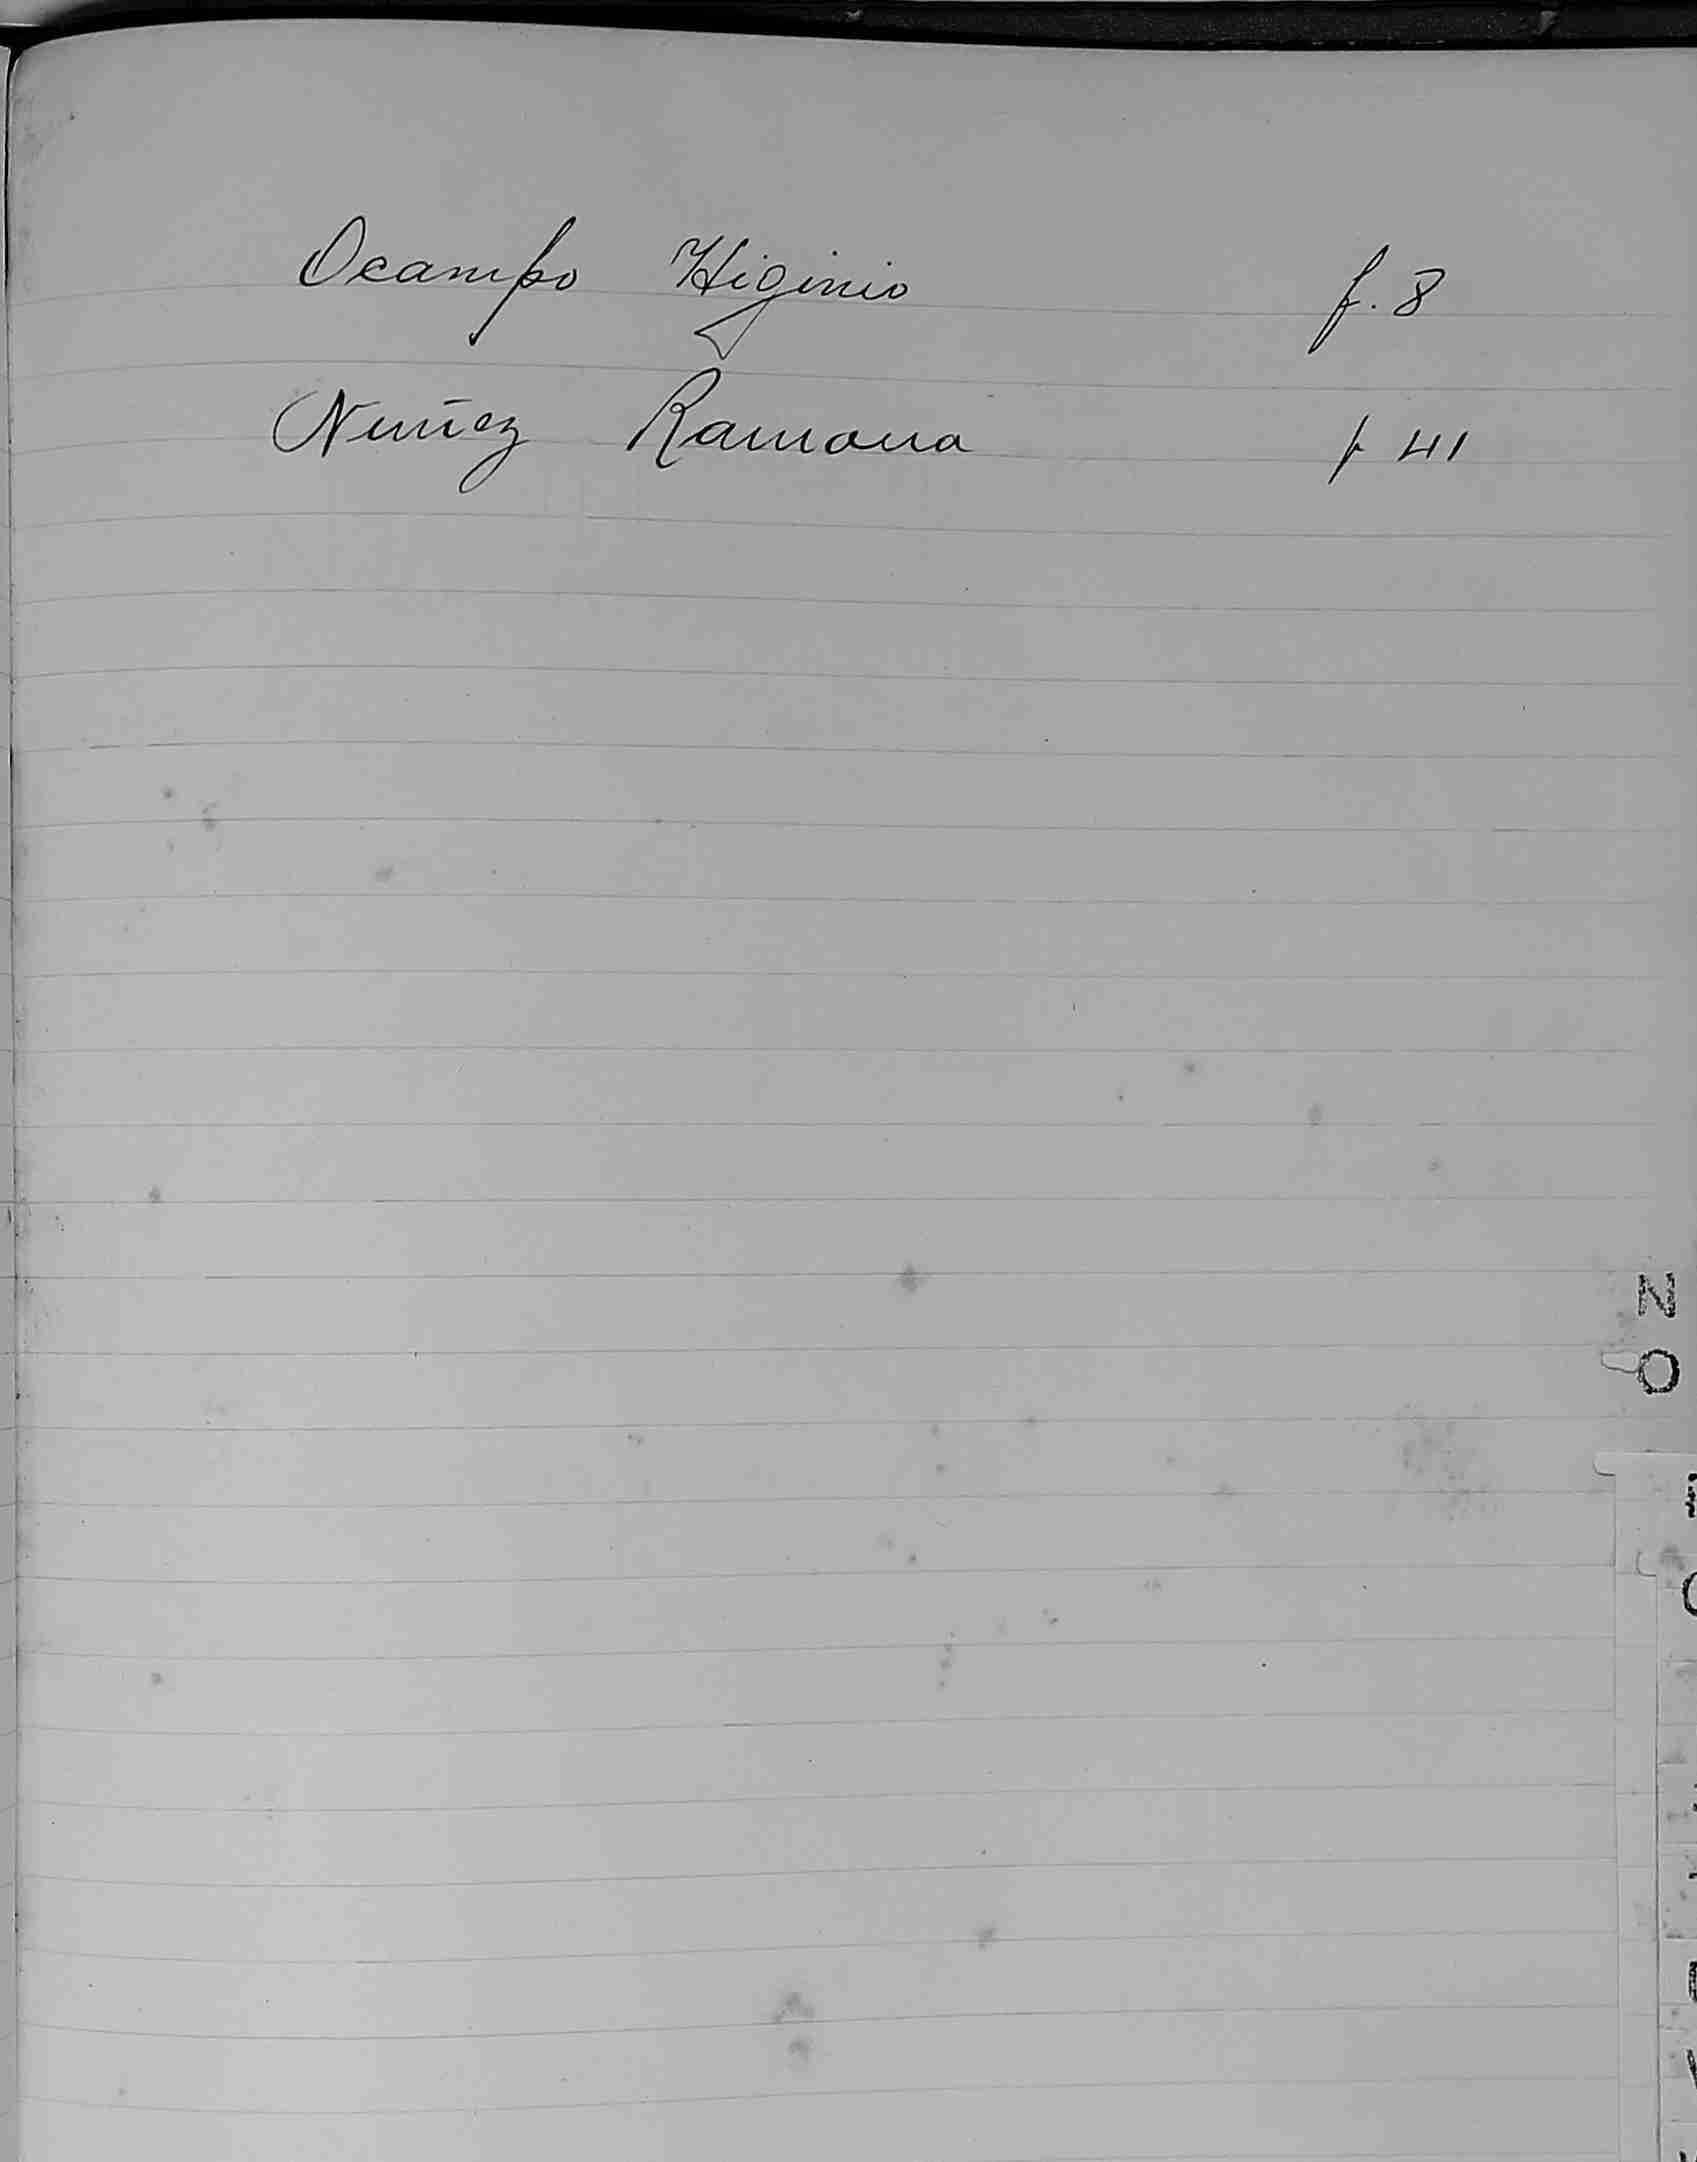 Ocampo Higinio f. 8
Nuñez Ramona f 41
N
O